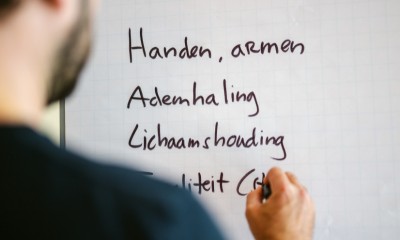 Handen, armen
Ademhaling
Lichaamshouding